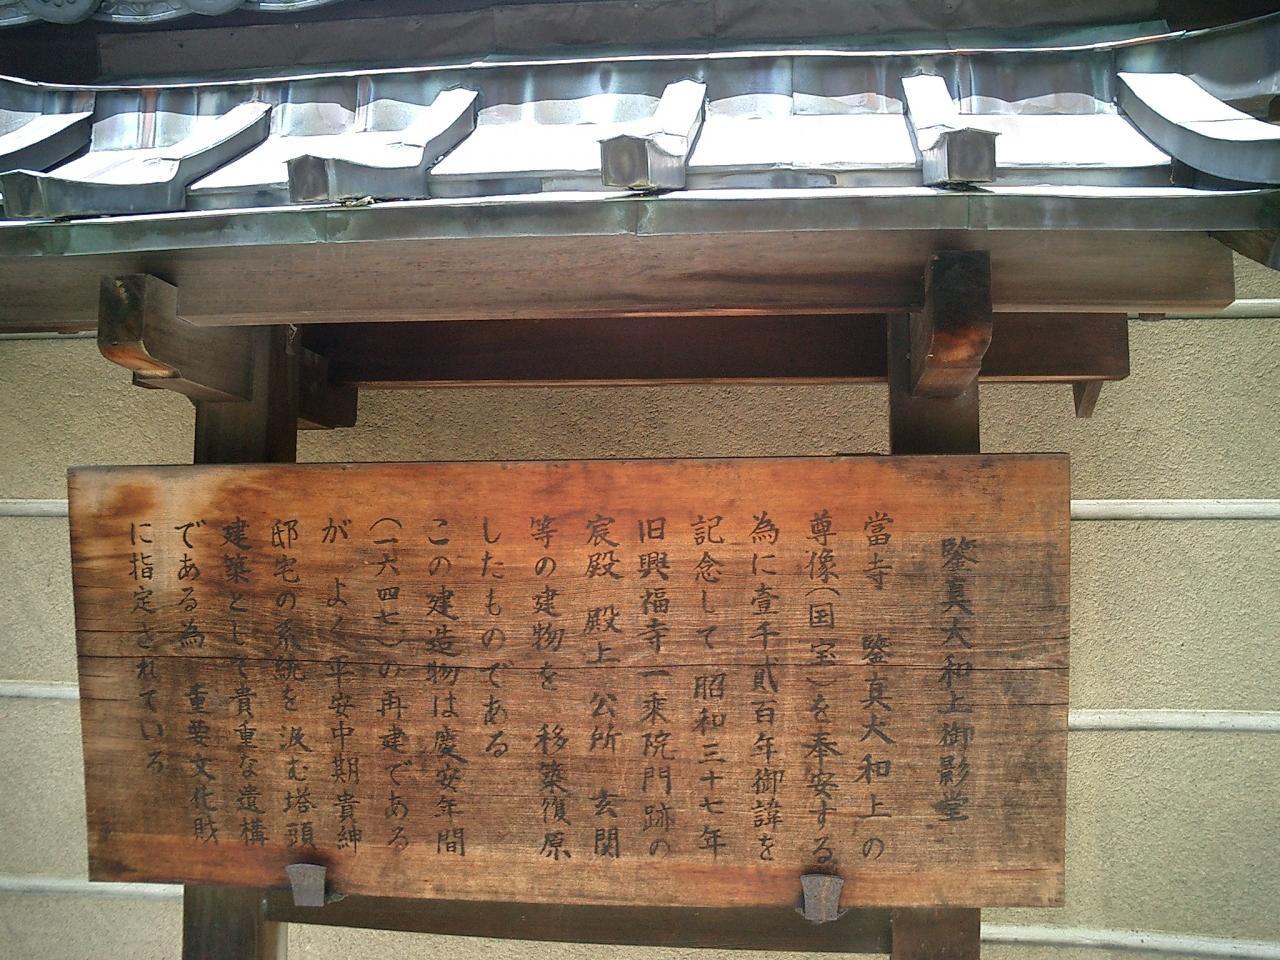 鑒真大和上御影堂
當寺　鑒真大和上の
尊像（国宝）を奉安する
為に壹千貳百年御諱を
記念して昭和三十七年
旧興福寺一乘院門跡の
宸殿　殿上　公所　玄関
等の建物を　移築復原
したものである
この建造物は慶安年間
（一六四七）の再建である
が　よく平安中期貴紳
邸宅の系統を汲む塔頭
建築として貴重な遺構
である為　重要文化財
に指定されている